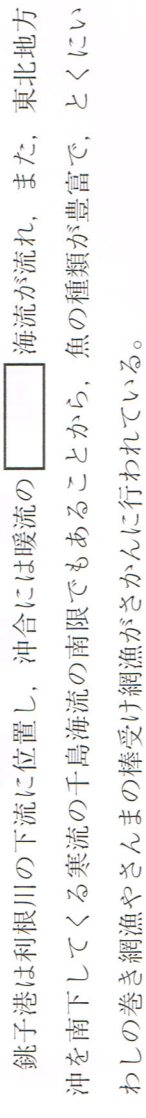 銚子港は利根川の下流に位置し，沖合には暖流の　　　海流が流れ，また，東北地方
沖を南下してくる寒流の千島海流の南限でもあることから，魚の種類が豊富で，とくにい
わしの巻き網漁やさんまの棒受け網漁がさかんに行われている。